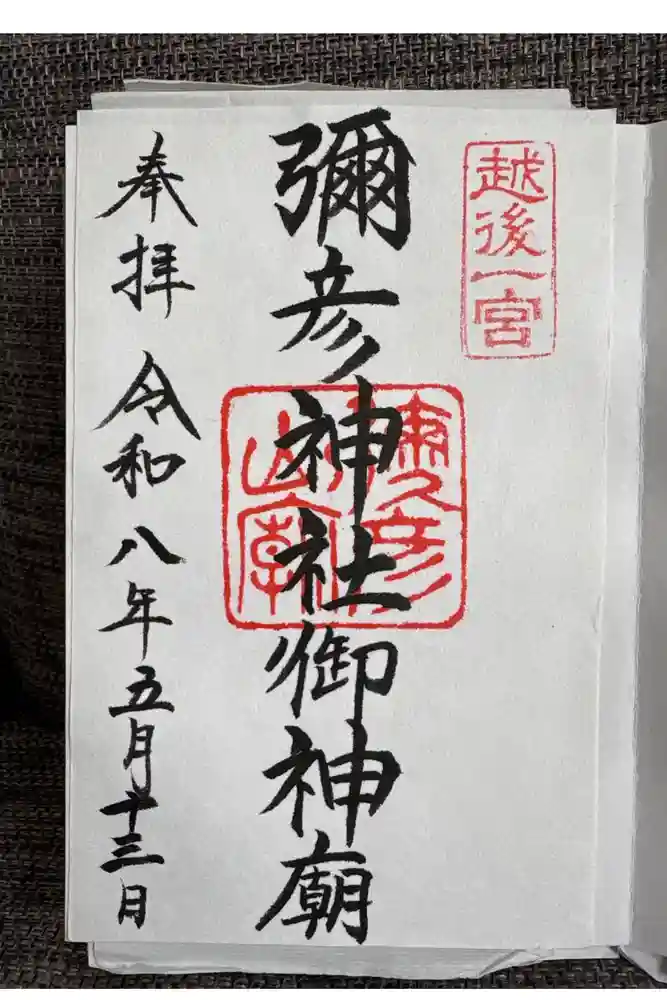 越後一宮
彌彦神社御神廟
奉拝 令和八年五月十三日